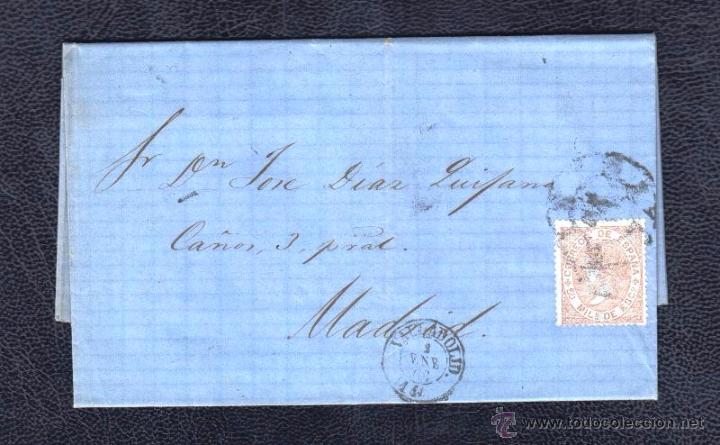 Sr Dn Jose Díaz Quijana
Caños, 3, pral.
Madrid.
CORREOS DE ESPAÑA
MILS DE ESC
VALLADOLID.
ENE
todocoleccion
www.todocoleccion.net